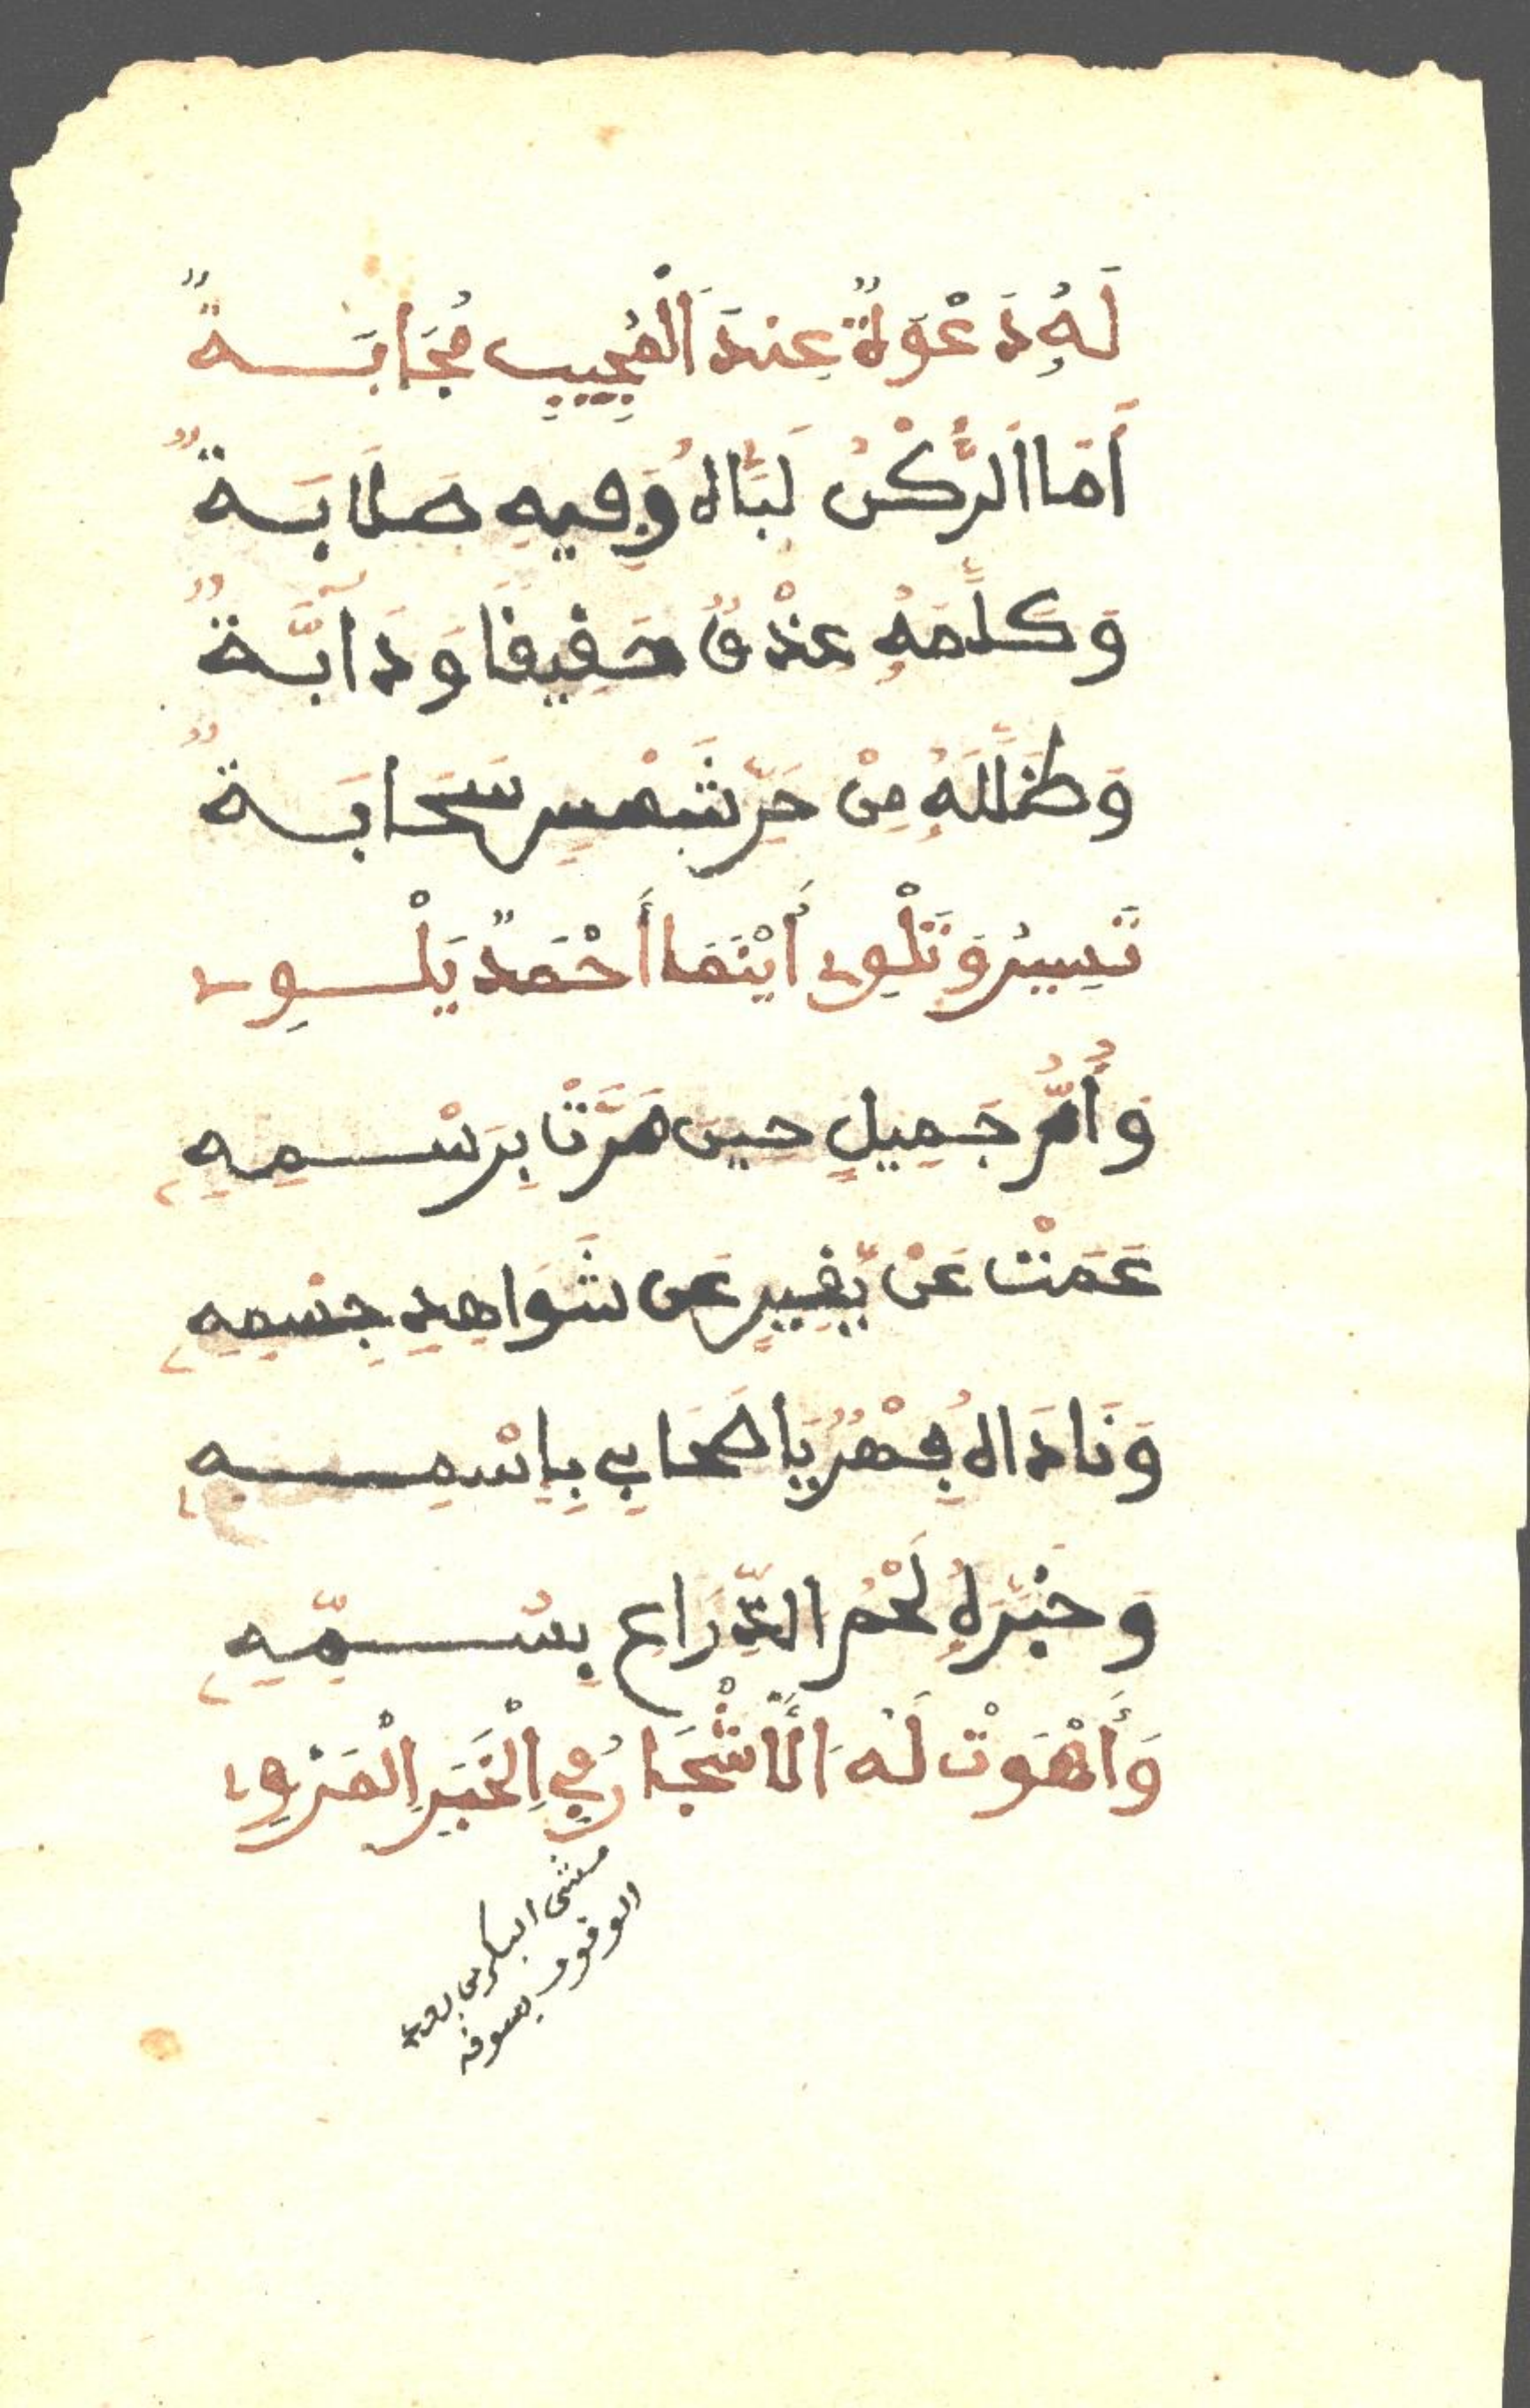 لَهُ دَعْوَةٌ عِندَ الْمُجِيبِ مُجَابَةٌ
أَمَا الرُّكْنُ لَبَّاهُ وَفِيهِ صَلَابَةٌ
وَكَلَّمَهُ عِذْقٌ حَقِيقًا وَدَآبَّةٌ
وَظَلَّلَهُ مِنْ حَرِّ شَمْسٍ سَحَابَةٌ
تَسِيرُ وَتَلْوِى أَيْنَمَا أَحْمَدٌ يَلْوِى
وَأُمُّ جَمِيلٍ حِينَ مَرَّتْ بِرَسْمِهِ
عَمَتْ عَنْ يَّقِيرٍ عَن شَوَاهِدِ جِسْمِهِ
وَنَادَاهُ فِهْرٌ يَا صَحَابِي بِاسْمِهِ
وَخَبَّرَهُ لَحْمُ الذِّرَاعِ بِسُمِّهِ
وَأَهْوَتْ لَهُ الْأَشْجَارُ فِي الْخَبَرِ الْمَرْوِى